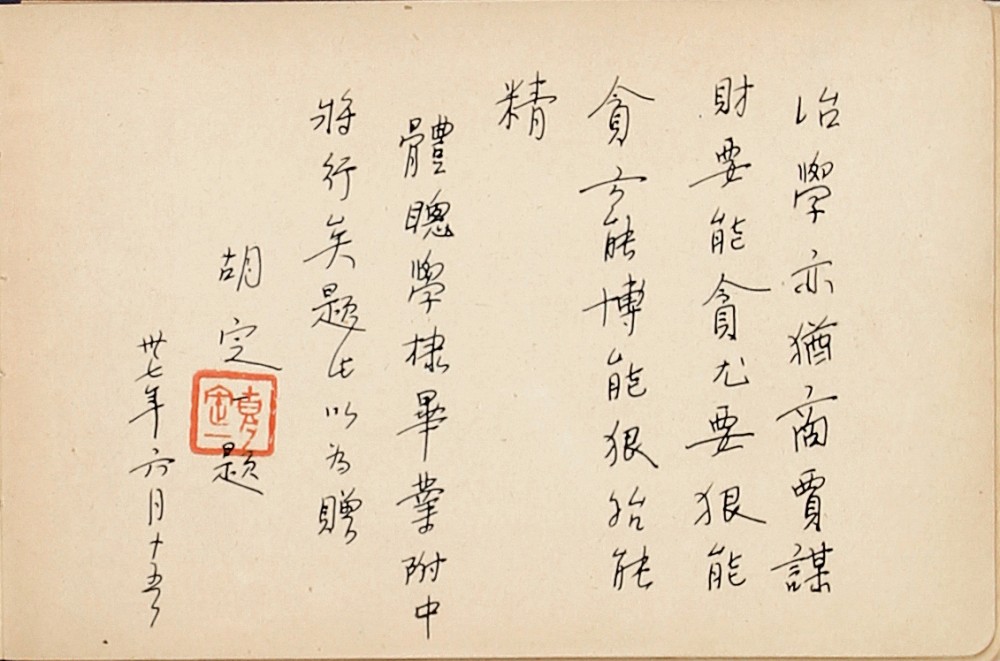 治學亦猶商賈謀
財要能貪尤要狠能
貪方能博能狠始能
精
體聰學棣畢業附中
將行矣題此以為贈
胡定題
卅七年六月十五